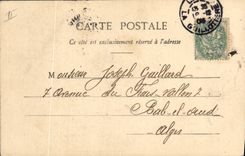 CARTE POSTALE
Ce côté est exclusivement réservé à l'adresse
Monsieur Joseph Gaillard
7 Avenue du Frais Vallon 7
Bab-el-oued
Alger